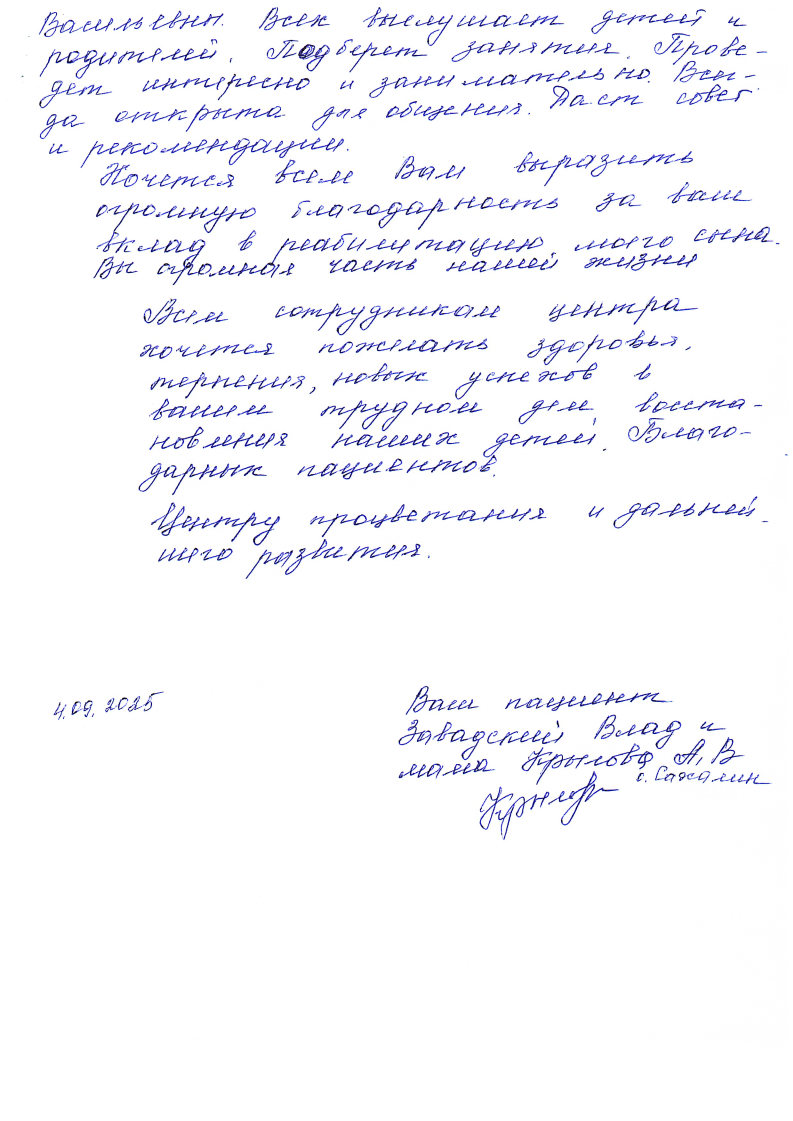 Васильевны. Всех выслушает детей и
родителей. Подберет занятия. Прове-
дет интересно и занимательно. Всег-
да открыта для общения. Даст совет
и рекомендации.
Хочется всем Вам выразить
огромную благодарность за ваш
вклад в реабилитацию моего сына.
Вы огромная часть нашей жизни
Всем сотрудникам центра
хочется пожелать здоровья,
терпения, новых успехов в
вашем трудном деле восста-
новления наших детей. Благо-
дарных пациентов.
Центру процветания и дальней-
шего развития.
4.09.2025
Ваш пациент
Завадский Влад и
мама Крылова А.В
о. Сахалин